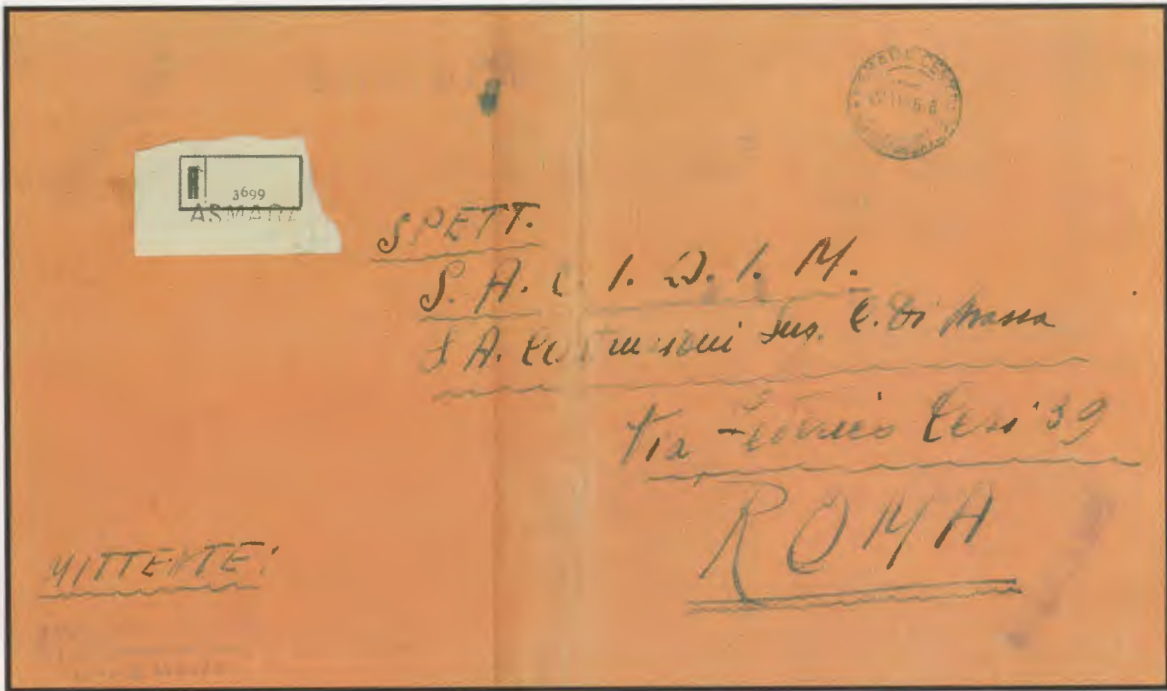 3699
ASMARA
SPETT.
S. A. C. I. D. I. M.
S A. Costruzioni Ing. C. Di Massa
Via Federico Cesi 39
ROMA
MITTENTE: